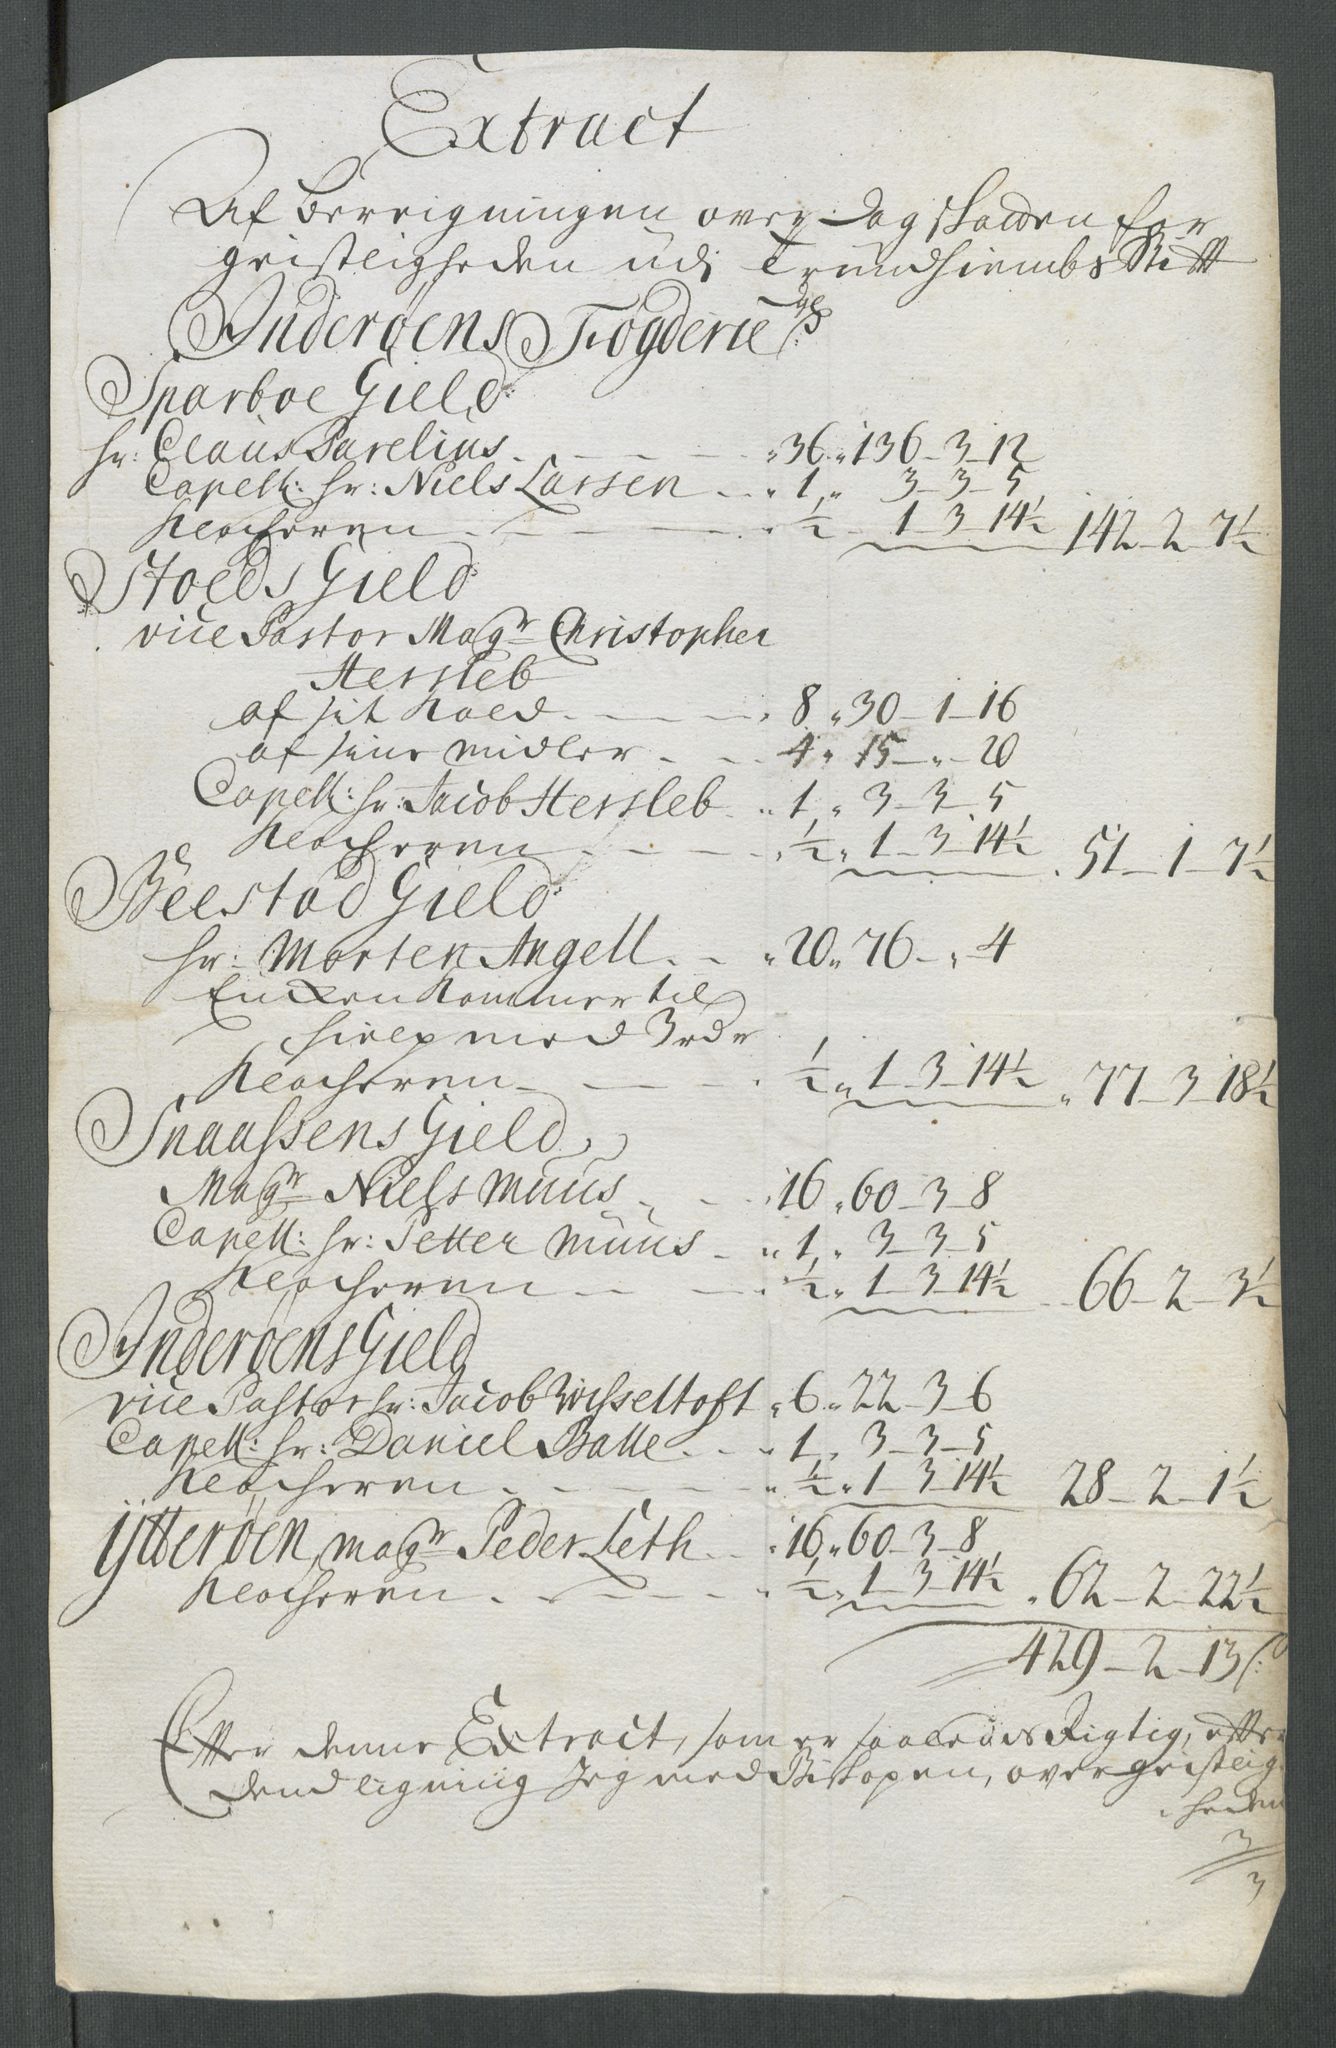 Extract
Af berregningen over Dag skatten for
geistligheden udi Trundhiembs Stift
Inderøens Fogderie
Sparboe Gield
hr: Claus Parelius. „36„ 136_3_12
Capell: hr: Niels Larsen „1„ 3_3_5
Klocheren ½ 1_3_14½ 142_2_7½
Stoeds Gield
vice Pastor Magr Christopher
Hersleb
af sit kald 8„30_1_16
af sine midler 4„15_„_20
Capell: hr: Jacob Hersleb „1„3_3_5
Klocheren „½„1_3_14½ 51_1_7½
Beestad Gield
hr: Morten Angell „20„76_„_4
Encken kommer til
hielp med 3 rdr
Klocheren ½„1_3_14½ „77_3_18½
Snaassens Gield
Magr Niels Muus 16„60_3_8
Capell: hr: Petter Muus „1„3_3_5
Klocheren ½„1_3_14½ 66_2_3½
Inderøens Gield
vice Pastor hr: Jacob Wisseltoft „6„22_3_6
Capell: hr: Daniel Balle „1„3_3_5
Klocheren „½„1_3_14½ 28_2_1½
Ytterøen, magr Peder Leth „16„60_3_8
Klocheren „½„1_3_14½ „62_2_22½
429_2_13
Effter denne Extract, som er saaledis Rigtig, effter
dend ligning Jeg med Biskopen, over geistlig-
heden
3
3